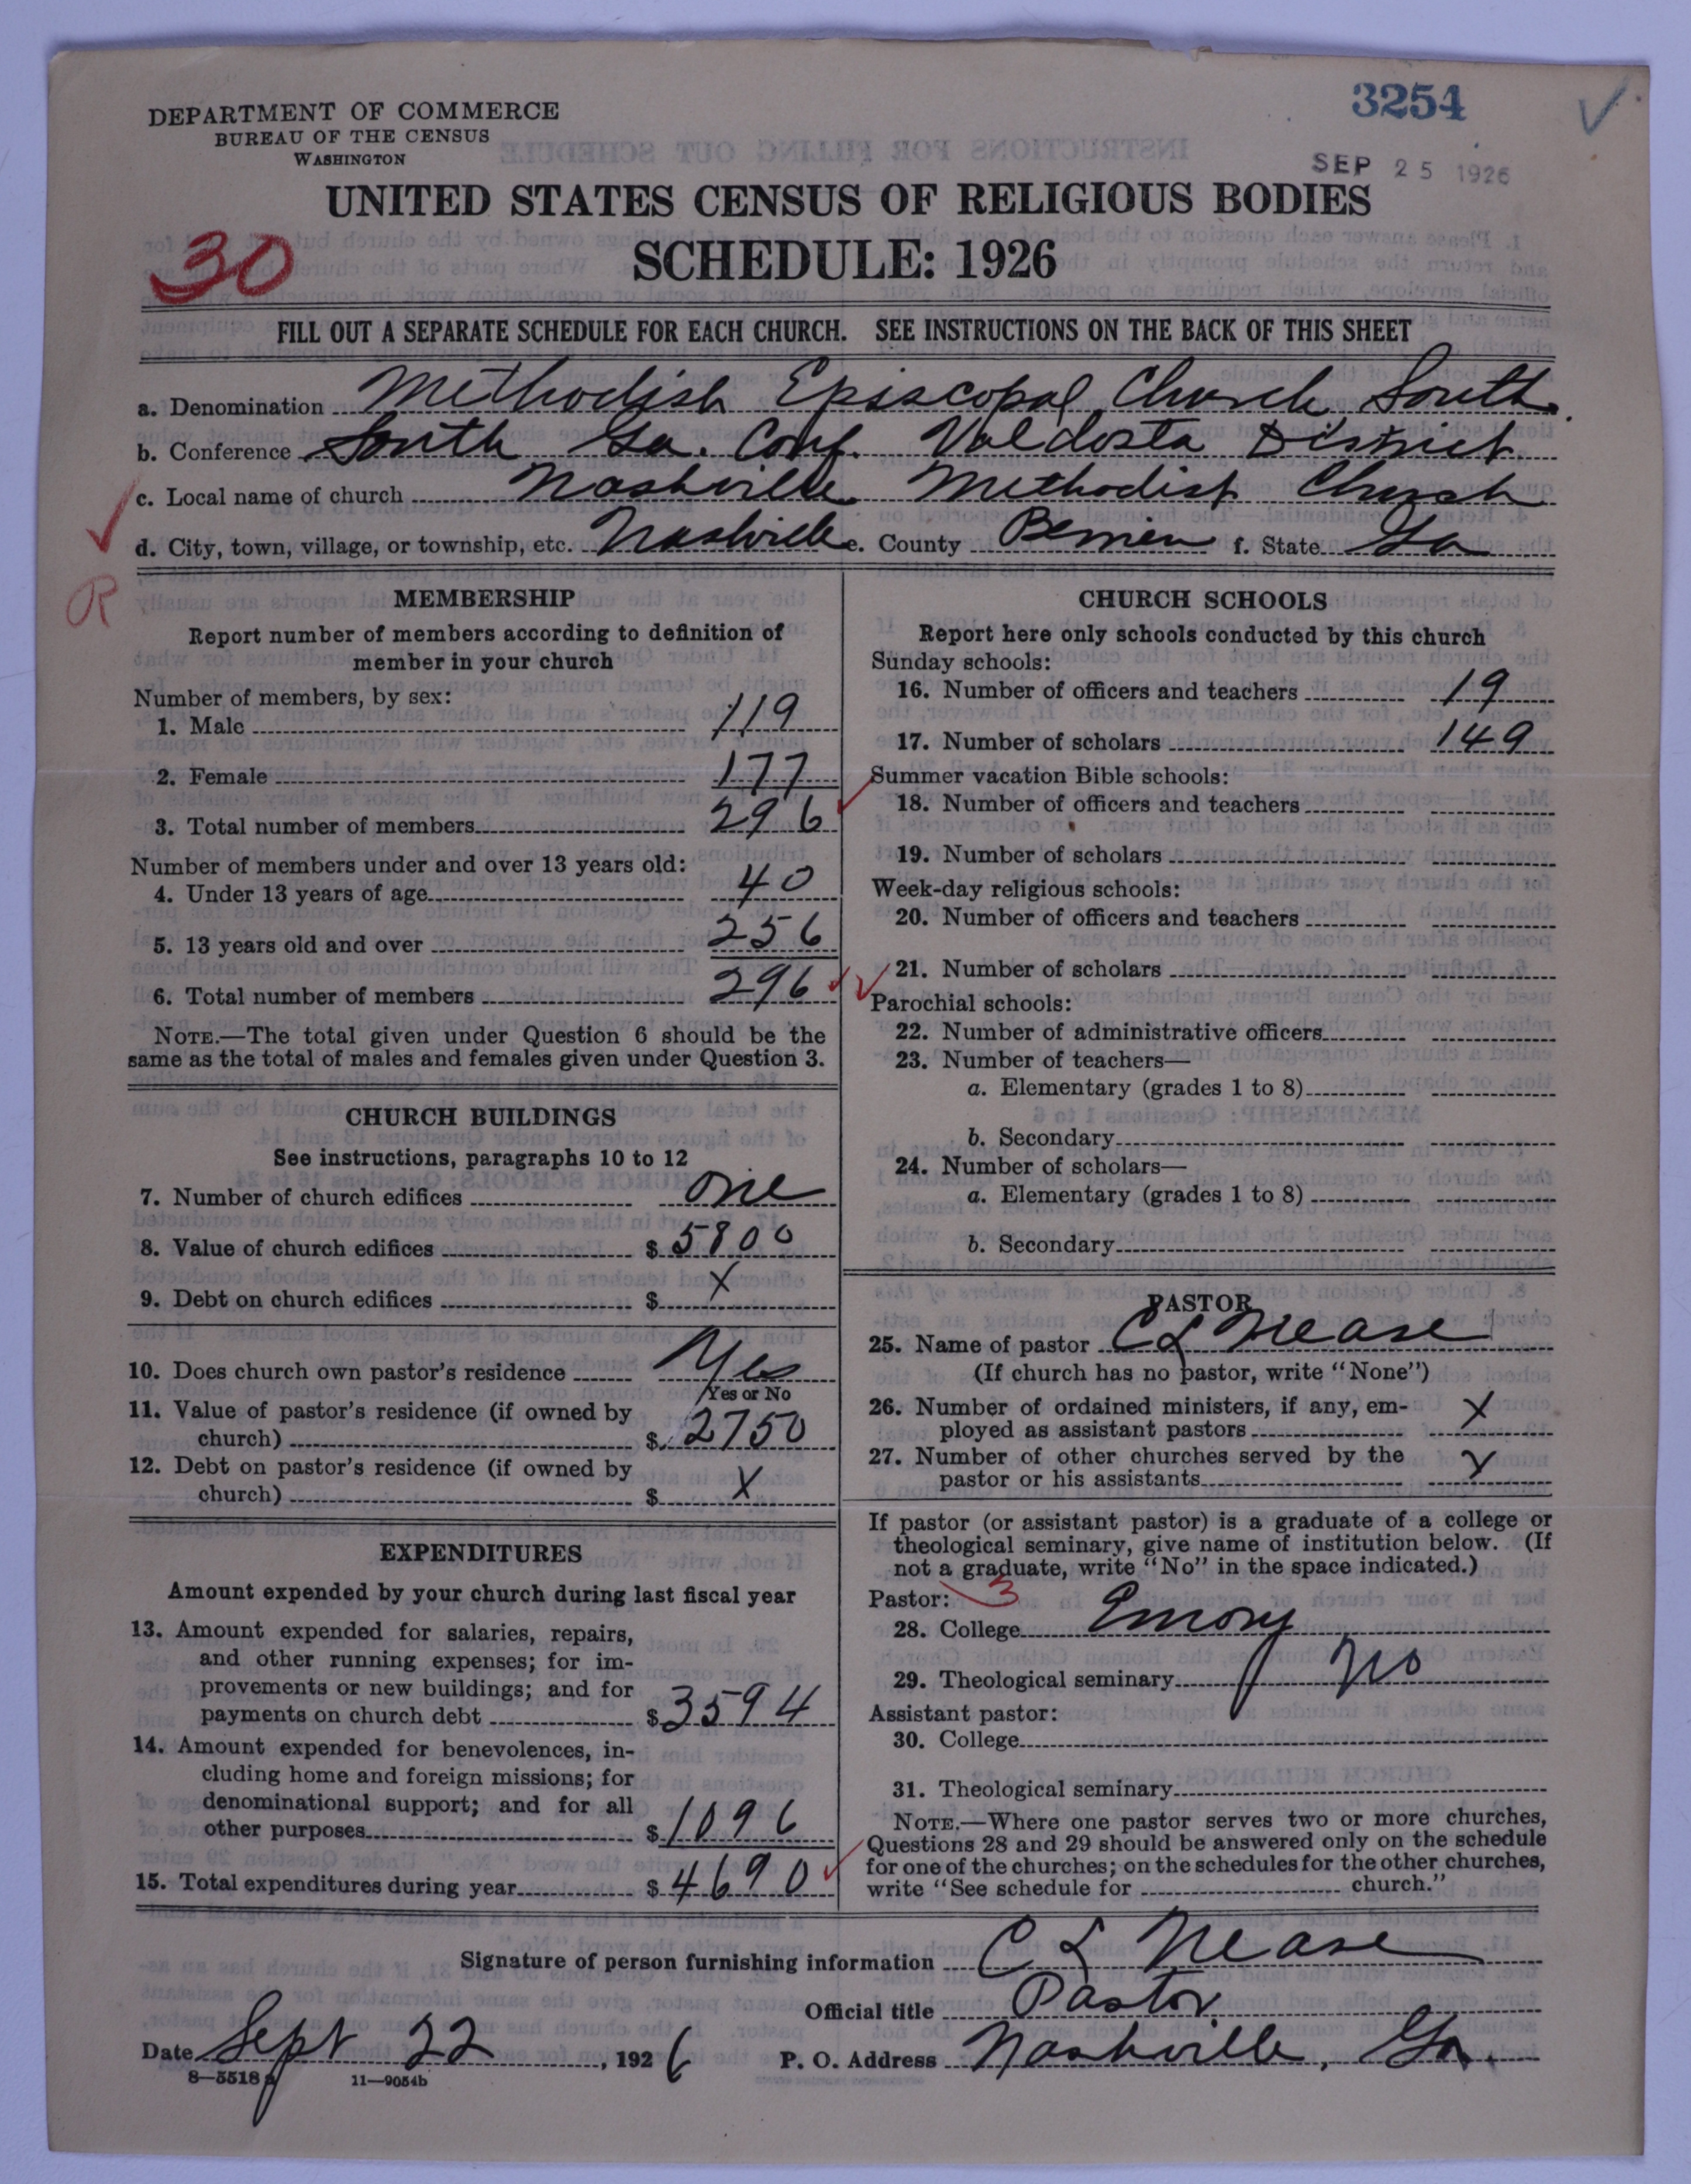 3254
DEPARTMENT OF COMMERCE
BUREAU OF THE CENSUS
WASHINGTON
SEP 25 1926
UNITED STATES CENSUS OF RELIGIOUS BODIES
30
SCHEDULE: 1926
FILL OUT A SEPARATE SCHEDULE FOR EACH CHURCH. SEE INSTRUCTIONS ON THE BACK OF THIS SHEET
a. Denomination Methodist Episcopal Church South
b. Conference South Ga. Conf. Valdosta District
c. Local name of church Nashville Methodist Church
d. City, town, village, or township, etc. Nashville e. County Berrien f. State Ga
R
MEMBERSHIP
Report number of members according to definition of
member in your church
Number of members, by sex:
1. Male 119
2. Female 177
3. Total number of members 296
Number of members under and over 13 years old:
4. Under 13 years of age 40
5. 13 years old and over 256
6. Total number of members 296
NOTE.—The total given under Question 6 should be the
same as the total of males and females given under Question 3.
CHURCH BUILDINGS
See instructions, paragraphs 10 to 12
7. Number of church edifices one
8. Value of church edifices $ 5800
9. Debt on church edifices $ X
10. Does church own pastor's residence Yes
Yes or No
11. Value of pastor's residence (if owned by
church) $ 2750
12. Debt on pastor's residence (if owned by
church) $ X
EXPENDITURES
Amount expended by your church during last fiscal year
13. Amount expended for salaries, repairs,
and other running expenses; for im-
provements or new buildings; and for
payments on church debt $ 3594
14. Amount expended for benevolences, in-
cluding home and foreign missions; for
denominational support; and for all
other purposes $ 1096
15. Total expenditures during year $ 4690
CHURCH SCHOOLS
Report here only schools conducted by this church
Sunday schools:
16. Number of officers and teachers 19
17. Number of scholars 149
Summer vacation Bible schools:
18. Number of officers and teachers
19. Number of scholars
Week-day religious schools:
20. Number of officers and teachers
21. Number of scholars
Parochial schools:
22. Number of administrative officers
23. Number of teachers—
a. Elementary (grades 1 to 8)
b. Secondary
24. Number of scholars—
a. Elementary (grades 1 to 8)
b. Secondary
PASTOR
25. Name of pastor C L Nease
(If church has no pastor, write "None")
26. Number of ordained ministers, if any, em-
ployed as assistant pastors X
27. Number of other churches served by the
pastor or his assistants X
If pastor (or assistant pastor) is a graduate of a college or
theological seminary, give name of institution below. (If
not a graduate, write "No" in the space indicated.)
Pastor: 3
28. College Emory
29. Theological seminary No
Assistant pastor:
30. College
31. Theological seminary
NOTE.—Where one pastor serves two or more churches,
Questions 28 and 29 should be answered only on the schedule
for one of the churches; on the schedules for the other churches,
write "See schedule for church."
Signature of person furnishing information C L Nease
Official title Pastor
Date Sept 22, 1926 P. O. Address Nashville, Ga.
8—5518 a 11—9054b